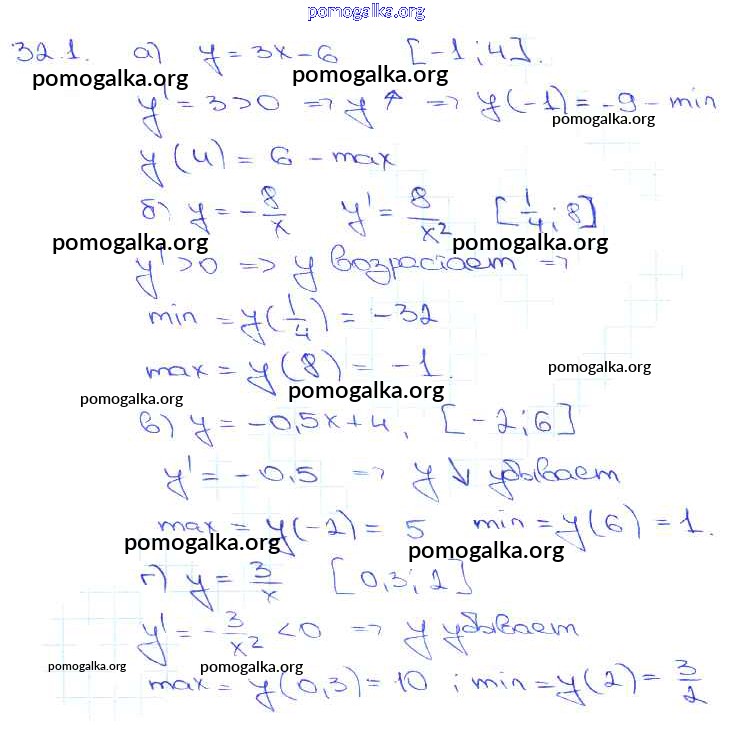 pomogalka.org
32.1. а) y = 3x – 6 [-1; 4].
pomogalka.org pomogalka.org
y' = 3 > 0 => y ↑ => y(-1) = -9 – min
pomogalka.org
y(4) = 6 – max
б) y = -8/x y' = 8/x² [1/4; 8]
pomogalka.org pomogalka.org
y' > 0 => y возрастает =>
min = y(1/4) = -32
max = y(8) = -1.
pomogalka.org
pomogalka.org pomogalka.org
в) y = -0,5x + 4, [-2; 6]
y' = -0,5 => y ↓ убывает
max = y(-2) = 5 min = y(6) = 1.
pomogalka.org pomogalka.org
г) y = 3/x [0,3; 2]
y' = -3/x² < 0 => y убывает
pomogalka.org pomogalka.org
max = y(0,3) = 10; min = y(2) = 3/2